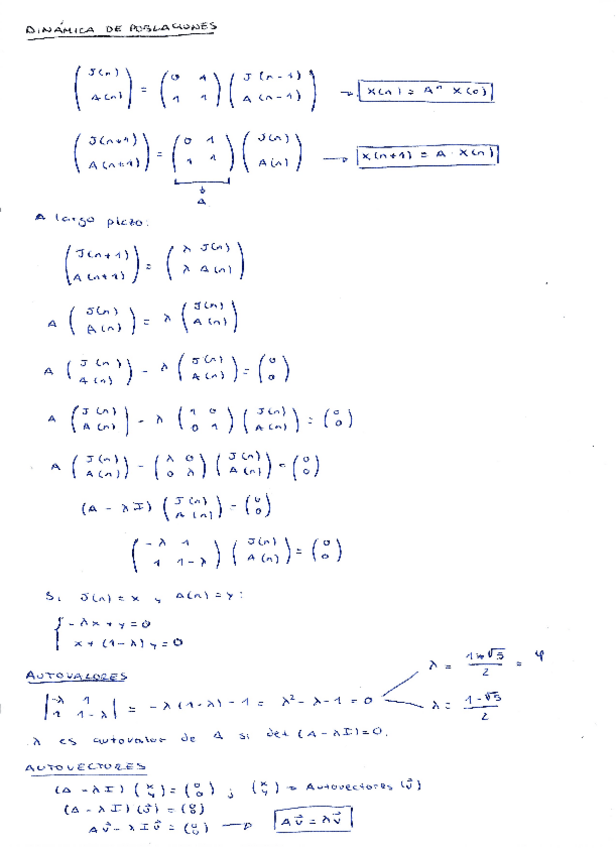 DINÁMICA DE POBLACIONES
( J(n) A(n) ) = ( 0 1 1 1 ) ( J(n-1) A(n-1) ) → X(n) = Aⁿ X(0)
( J(n+1) A(n+1) ) = ( 0 1 1 1 ) ( J(n) A(n) ) → X(n+1) = A · X(n)
A
A largo plazo:
( J(n+1) A(n+1) ) = ( λ J(n) λ A(n) )
A ( J(n) A(n) ) = λ ( J(n) A(n) )
A ( J(n) A(n) ) - λ ( J(n) A(n) ) = ( 0 0 )
A ( J(n) A(n) ) - λ ( 1 0 0 1 ) ( J(n) A(n) ) = ( 0 0 )
A ( J(n) A(n) ) - ( λ 0 0 λ ) ( J(n) A(n) ) = ( 0 0 )
(A - λI) ( J(n) A(n) ) = ( 0 0 )
( -λ 1 1 1-λ ) ( J(n) A(n) ) = ( 0 0 )
Si J(n) = x y A(n) = y:
{ -λx + y = 0
x + (1-λ)y = 0
AUTOVALORES
| -λ 1 1 1-λ | = -λ(1-λ) - 1 = λ² - λ - 1 = 0
λ = (1+√5)/2 = φ
λ = (1-√5)/2
λ es autovalor de A si det (A - λI) = 0.
AUTOVECTORES
(A - λI) ( x y ) = ( 0 0 ) ; ( x y ) = Autovectores (v⃗)
(A - λI) (v⃗) = ( 0 0 )
Av⃗ - λIv⃗ = ( 0 0 ) → Av⃗ = λv⃗